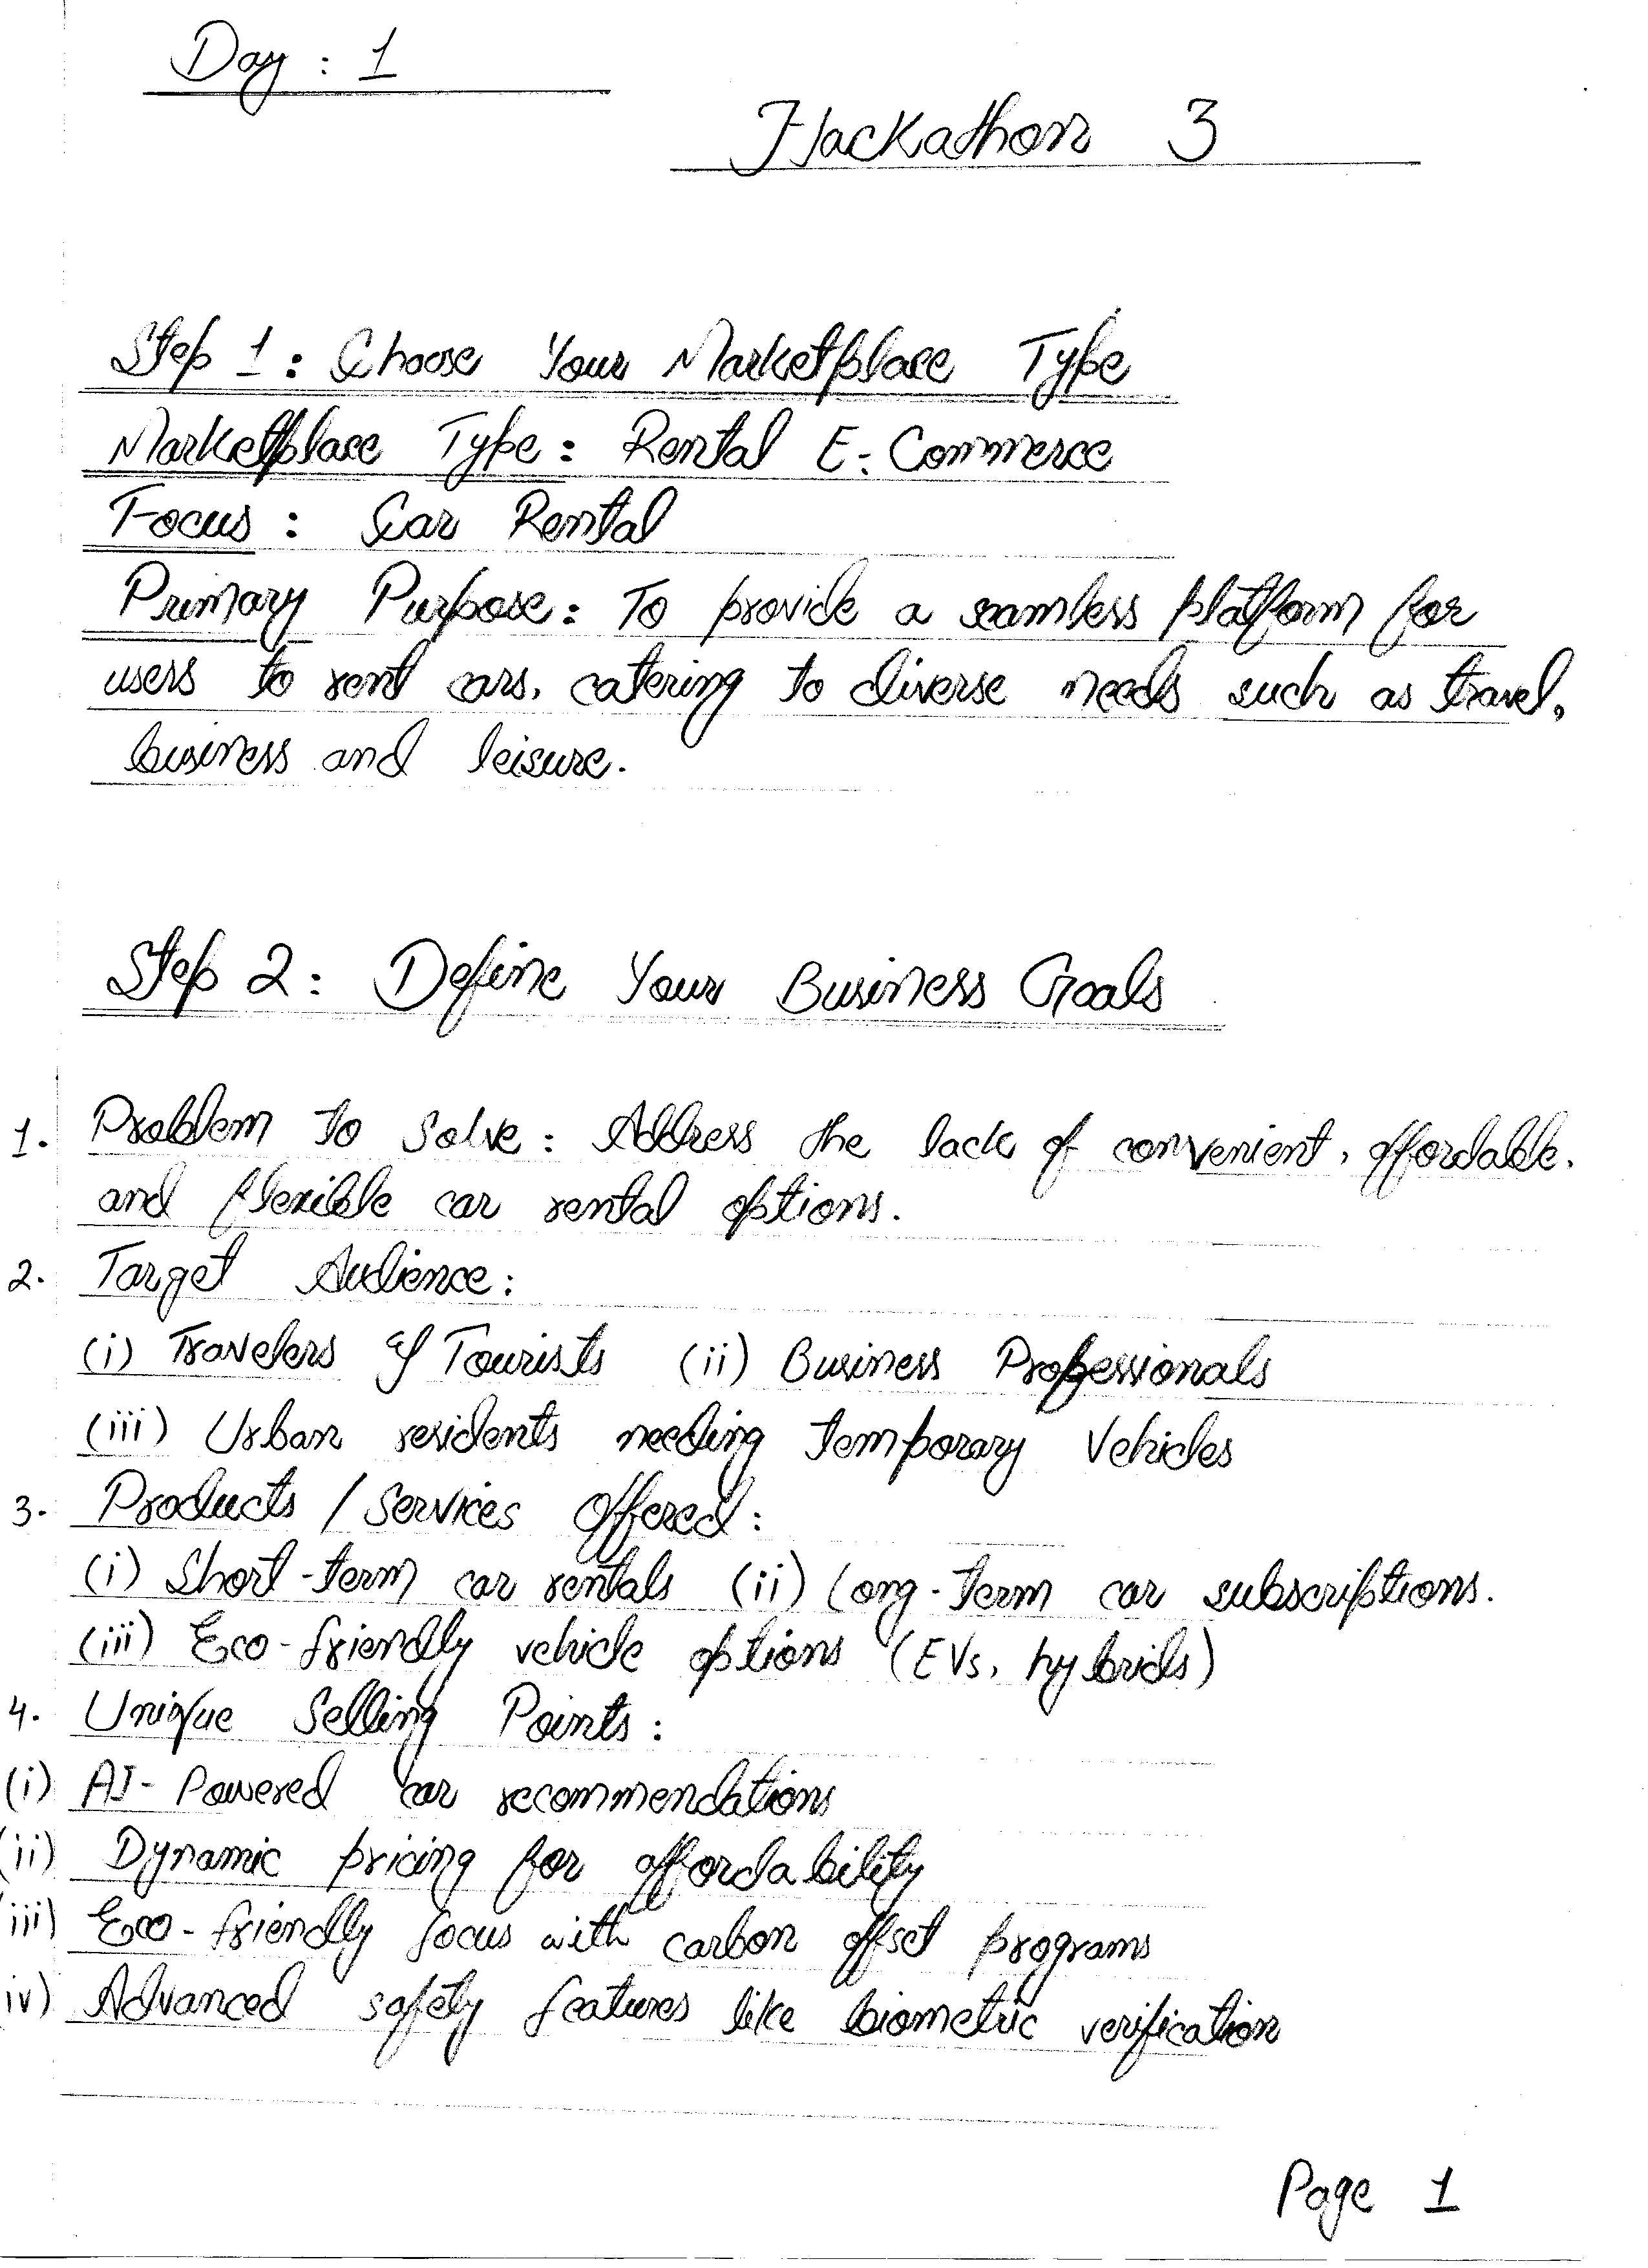 Day : 1
Hackathon 3
Step 1 : Choose Your Marketplace Type
Marketplace Type : Rental E-Commerce
Focus : Car Rental
Primary Purpose : To provide a seamless platform for
users to rent cars, catering to diverse needs such as travel,
business and leisure.
Step 2 : Define Your Business Goals
1. Problem to Solve : Address the lack of convenient, affordable,
and flexible car rental options.
2. Target Audience :
(i) Travelers & Tourists (ii) Business Professionals
(iii) Urban residents needing temporary vehicles
3. Products / Services Offered :
(i) Short-term car rentals (ii) Long-term car subscriptions.
(iii) Eco-friendly vehicle options (EVs, hybrids)
4. Unique Selling Points :
(i) AI-Powered car recommendations
(ii) Dynamic pricing for affordability
iii) Eco-friendly focus with carbon offset programs
iv) Advanced safety features like biometric verification
Page 1